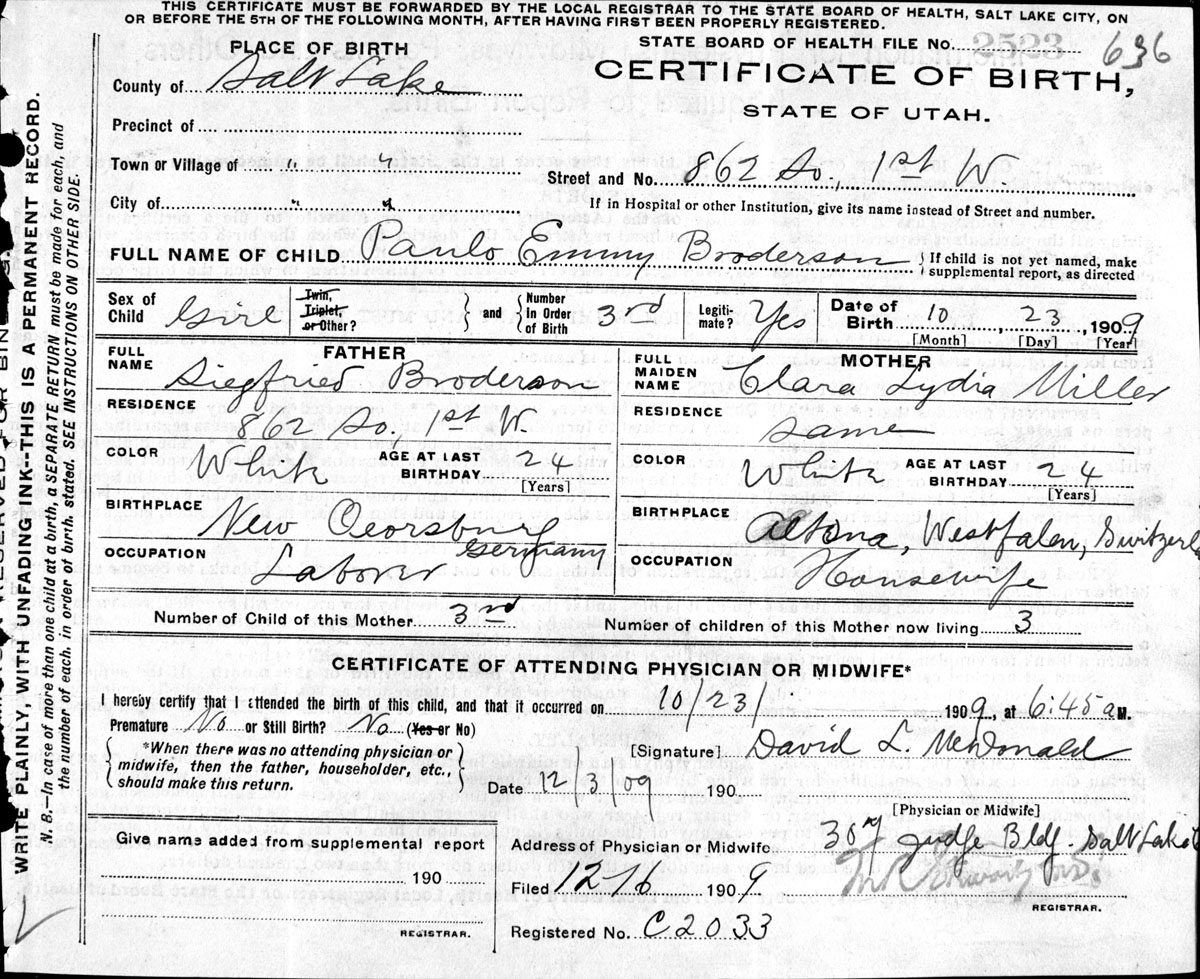 THIS CERTIFICATE MUST BE FORWARDED BY THE LOCAL REGISTRAR TO THE STATE BOARD OF HEALTH, SALT LAKE CITY, ON
OR BEFORE THE 5TH OF THE FOLLOWING MONTH, AFTER HAVING FIRST BEEN PROPERLY REGISTERED.
PLACE OF BIRTH
STATE BOARD OF HEALTH FILE No. 2523 636
County of Salt Lake
CERTIFICATE OF BIRTH,
STATE OF UTAH.
Precinct of
Town or Village of " "
Street and No. 862 So., 1st W.
City of " "
If in Hospital or other Institution, give its name instead of Street and number.
FULL NAME OF CHILD Paulo Emmy Broderson { If child is not yet named, make
supplemental report, as directed
Sex of Child Girl Twin, Triplet, or Other? } and { Number in Order of Birth 3rd Legiti-mate? Yes Date of Birth 10, 23, 1909
[Month] [Day] [Year]
FATHER
FULL NAME Siegfried Broderson
RESIDENCE
862 So, 1st W.
COLOR White AGE AT LAST BIRTHDAY 24
[Years]
BIRTHPLACE
New
Germany
OCCUPATION
Laborer
MOTHER
FULL MAIDEN NAME Clara Lydia Miller
RESIDENCE
same
COLOR White AGE AT LAST BIRTHDAY 24
[Years]
BIRTHPLACE
Altona, Westfalen, Switzerl
OCCUPATION
Housewife
Number of Child of this Mother 3rd Number of children of this Mother now living 3
CERTIFICATE OF ATTENDING PHYSICIAN OR MIDWIFE*
I hereby certify that I attended the birth of this child, and that it occurred on 10/23/ 1909, at 6:45 a M.
Premature No or Still Birth? No (Yes or No)
{ *When there was no attending physician or
midwife, then the father, householder, etc.,
should make this return. }
[Signature] David L. McDonald
Date 12/3/09 190
[Physician or Midwife]
Give name added from supplemental report
190
REGISTRAR.
Address of Physician or Midwife 307 Judge Bldg. Salt Lake
Filed 12/6 1909
REGISTRAR.
Registered No. C2033
WRITE PLAINLY, WITH UNFADING INK--THIS IS A PERMANENT RECORD.
N. B.--In case of more than one child at a birth, a SEPARATE RETURN must be made for each, and
the number of each, in order of birth, stated. SEE INSTRUCTIONS ON OTHER SIDE.